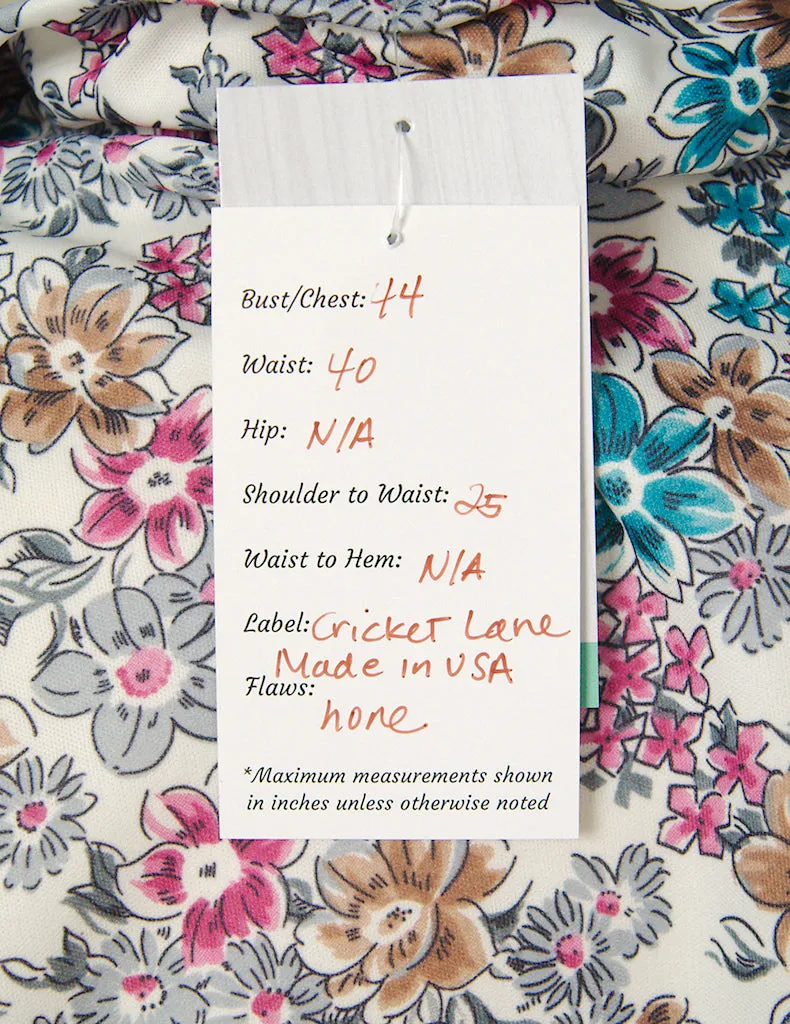 Bust/Chest: 44
Waist: 40
Hip: N/A
Shoulder to Waist: 25
Waist to Hem: N/A
Label: Cricket Lane
Made in USA
Flaws:
none
*Maximum measurements shown
in inches unless otherwise noted